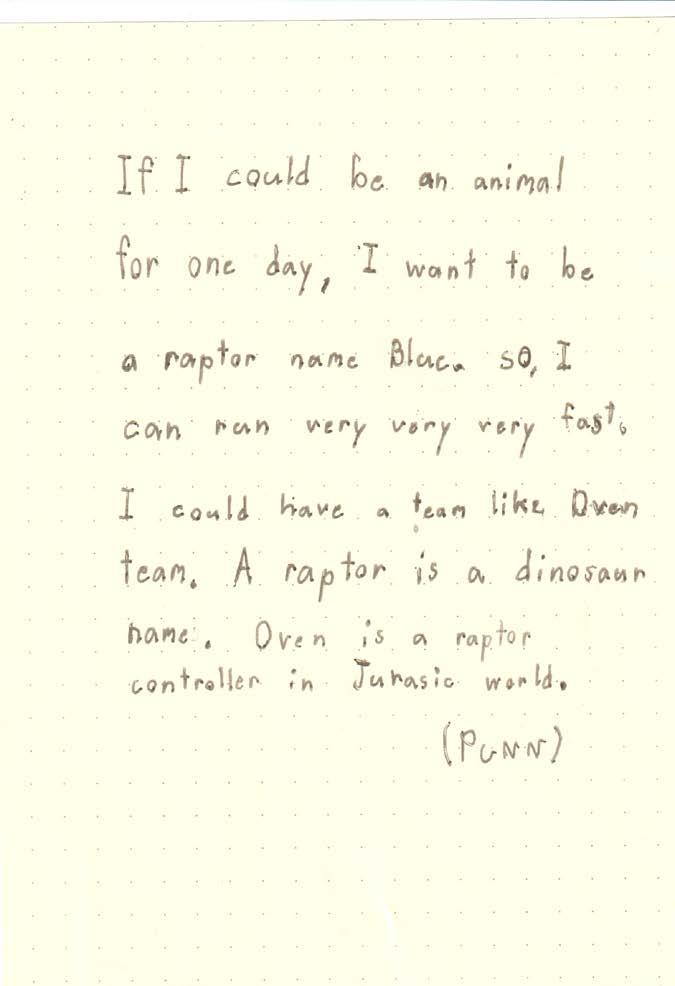 If I could be an animal
for one day, I want to be
a raptor name Blue. so, I
can run very very very fast.
I could have a team like Oven
team. A raptor is a dinosaur
name. Oven is a raptor
controller in Jurasic world.
(PUNN)